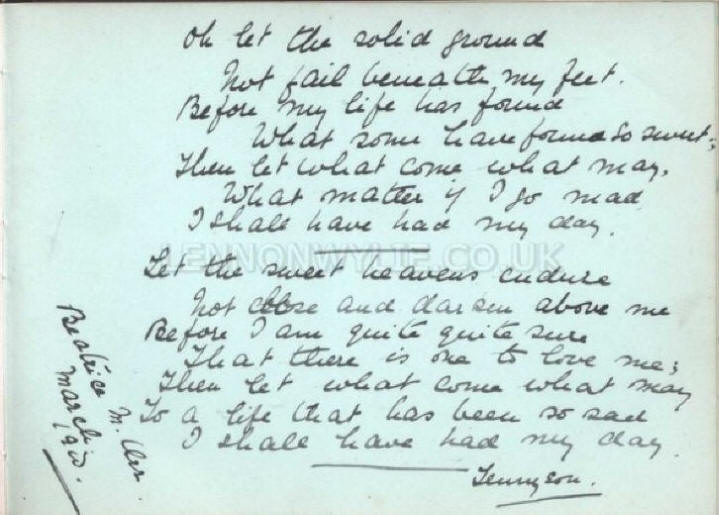 Oh let the solid ground
Not fail beneath my feet.
Before my life has found
What some have found so sweet;
Then let what come what may,
What matter if I go mad
I shall have had my day.
LENNONWYLIE.CO.UK
Let the sweet heavens endure
Not close and darken above me
Before I am quite quite sure
That there is one to love me;
Then let what come what may
To a life that has been so sad
I shall have had my day.
Tennyson.
Beatrice Miller.
March